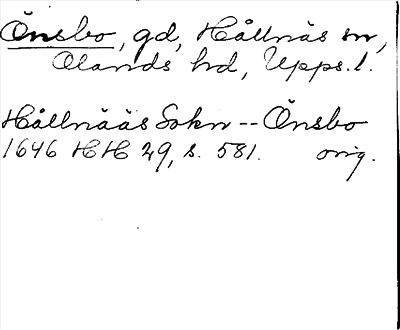 Önsbo, gd, Hållnäs sn,
Olands hd, Upps.l.
Hållnääs Sokn -- Önsbo
1646 HH 29, s. 581. orig.